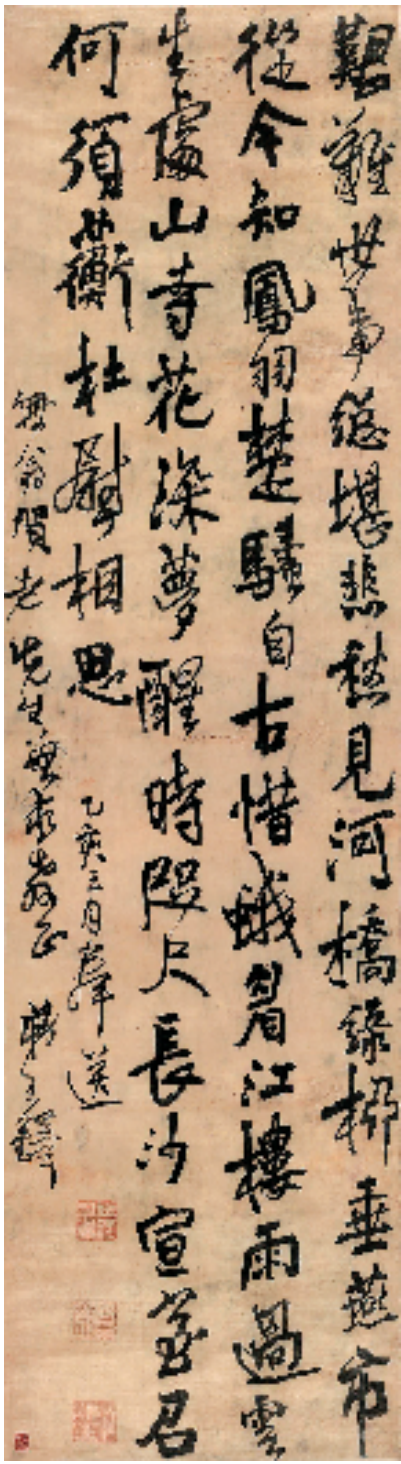 艱難世事總堪悲愁見河橋綠柳垂燕市
從今知鳳羽楚騷自古惜蛾眉江樓雨過雲
生處山寺花深夢醒時咫尺長沙宣室召
何須蘅杜慰相思
乙亥三月奉送
無翁賀老先生求教正 王鐸